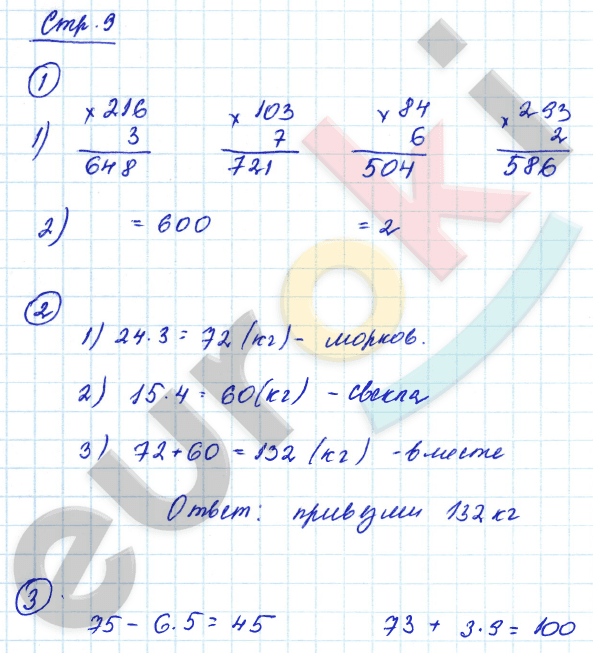 Стр. 9
①
1) × 216 × 103 × 84 × 293
3 7 6 2
648 721 504 586
2) = 600 = 2
②
1) 24·3 = 72 (кг) - морков.
2) 15·4 = 60 (кг) - свекла
3) 72+60 = 132 (кг) - вместе
Ответ: привезли 132 кг
③
75 - 6·5 = 45 73 + 3·9 = 100
euroki